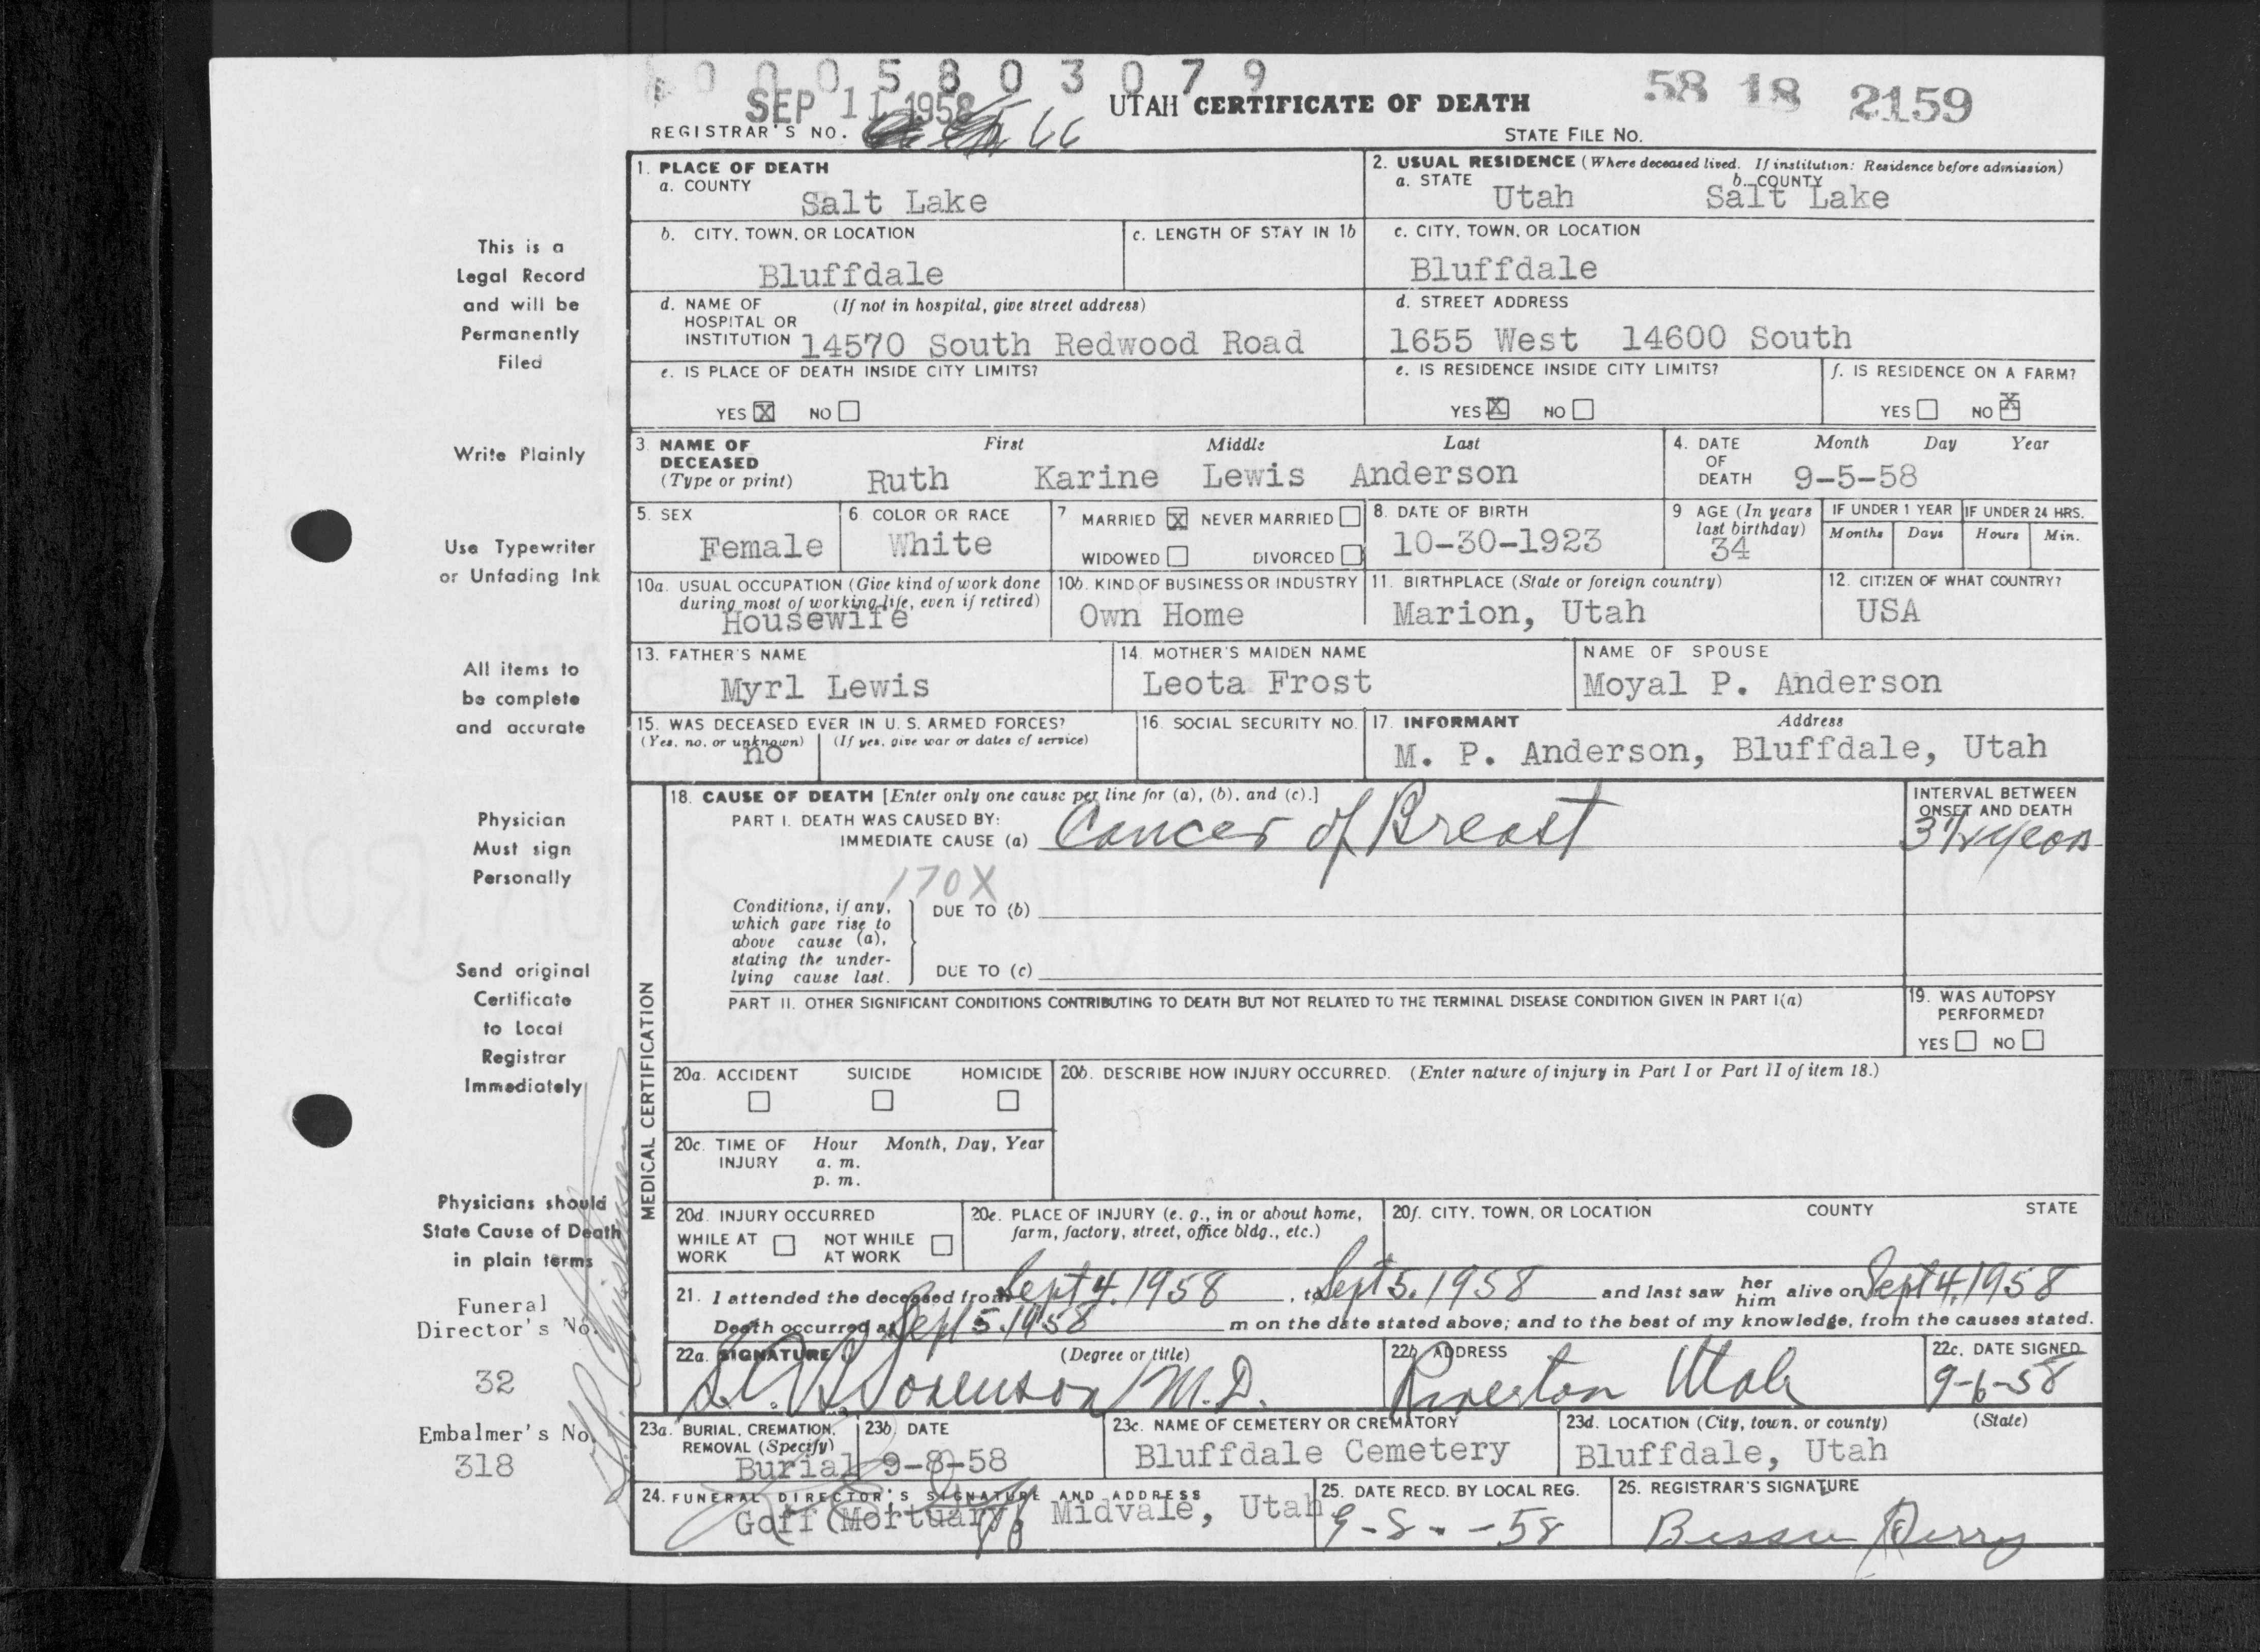 0005803079
SEP 11 1958
UTAH CERTIFICATE OF DEATH
58 18 2159
REGISTRAR'S NO. 66
STATE FILE NO.
This is a
Legal Record
and will be
Permanently
Filed
Write Plainly
Use Typewriter
or Unfading Ink
All items to
be complete
and accurate
Physician
Must sign
Personally
Send original
Certificate
to Local
Registrar
Immediately
Physicians should
State Cause of Death
in plain terms
Funeral
Director's No.
32
Embalmer's No.
318
1. PLACE OF DEATH
a. COUNTY
Salt Lake
2. USUAL RESIDENCE (Where deceased lived. If institution: Residence before admission)
a. STATE b. COUNTY
Utah Salt Lake
b. CITY, TOWN, OR LOCATION
Bluffdale
c. LENGTH OF STAY IN 1b
c. CITY, TOWN, OR LOCATION
Bluffdale
d. NAME OF (If not in hospital, give street address)
HOSPITAL OR
INSTITUTION 14570 South Redwood Road
d. STREET ADDRESS
1655 West 14600 South
e. IS PLACE OF DEATH INSIDE CITY LIMITS?
YES X NO
e. IS RESIDENCE INSIDE CITY LIMITS?
YES X NO
f. IS RESIDENCE ON A FARM?
YES NO X
3. NAME OF First Middle Last
DECEASED
(Type or print) Ruth Karine Lewis Anderson
4. DATE Month Day Year
OF
DEATH 9-5-58
5. SEX
Female
6. COLOR OR RACE
White
7 MARRIED X NEVER MARRIED
WIDOWED DIVORCED
8. DATE OF BIRTH
10-30-1923
9 AGE (In years
last birthday)
34
IF UNDER 1 YEAR
Months Days
IF UNDER 24 HRS.
Hours Min.
10a. USUAL OCCUPATION (Give kind of work done
during most of working life, even if retired)
Housewife
10b. KIND OF BUSINESS OR INDUSTRY
Own Home
11. BIRTHPLACE (State or foreign country)
Marion, Utah
12. CITIZEN OF WHAT COUNTRY?
USA
13. FATHER'S NAME
Myrl Lewis
14. MOTHER'S MAIDEN NAME
Leota Frost
NAME OF SPOUSE
Moyal P. Anderson
15. WAS DECEASED EVER IN U. S. ARMED FORCES?
(Yes, no, or unknown) (If yes, give war or dates of service)
no
16. SOCIAL SECURITY NO.
17. INFORMANT Address
M. P. Anderson, Bluffdale, Utah
MEDICAL CERTIFICATION
18. CAUSE OF DEATH [Enter only one cause per line for (a), (b), and (c).]
PART I. DEATH WAS CAUSED BY:
IMMEDIATE CAUSE (a) Cancer of Breast
INTERVAL BETWEEN
ONSET AND DEATH
3 1/2 years
170X
Conditions, if any,
which gave rise to
above cause (a),
stating the under-
lying cause last.
DUE TO (b)
DUE TO (c)
PART II. OTHER SIGNIFICANT CONDITIONS CONTRIBUTING TO DEATH BUT NOT RELATED TO THE TERMINAL DISEASE CONDITION GIVEN IN PART I(a)
19. WAS AUTOPSY
PERFORMED?
YES NO
20a. ACCIDENT SUICIDE HOMICIDE
20b. DESCRIBE HOW INJURY OCCURRED. (Enter nature of injury in Part I or Part II of item 18.)
20c. TIME OF Hour Month, Day, Year
INJURY a. m.
p. m.
20d. INJURY OCCURRED
WHILE AT NOT WHILE
WORK AT WORK
20e. PLACE OF INJURY (e. g., in or about home,
farm, factory, street, office bldg., etc.)
20f. CITY, TOWN, OR LOCATION COUNTY STATE
21. I attended the deceased from Sept 4, 1958, to Sept 5, 1958 and last saw her him alive on Sept 4, 1958
Death occurred at Sept 5, 1958 m on the date stated above; and to the best of my knowledge, from the causes stated.
22a. SIGNATURE (Degree or title)
Sorenson M.D.
22b. ADDRESS
Riverton Utah
22c. DATE SIGNED
9-6-58
23a. BURIAL, CREMATION,
REMOVAL (Specify)
Burial
23b. DATE
9-8-58
23c. NAME OF CEMETERY OR CREMATORY
Bluffdale Cemetery
23d. LOCATION (City, town, or county) (State)
Bluffdale, Utah
24. FUNERAL DIRECTOR'S SIGNATURE AND ADDRESS
Goff Mortuary, Midvale, Utah
25. DATE RECD. BY LOCAL REG.
9-8-58
26. REGISTRAR'S SIGNATURE
Bessie Perry